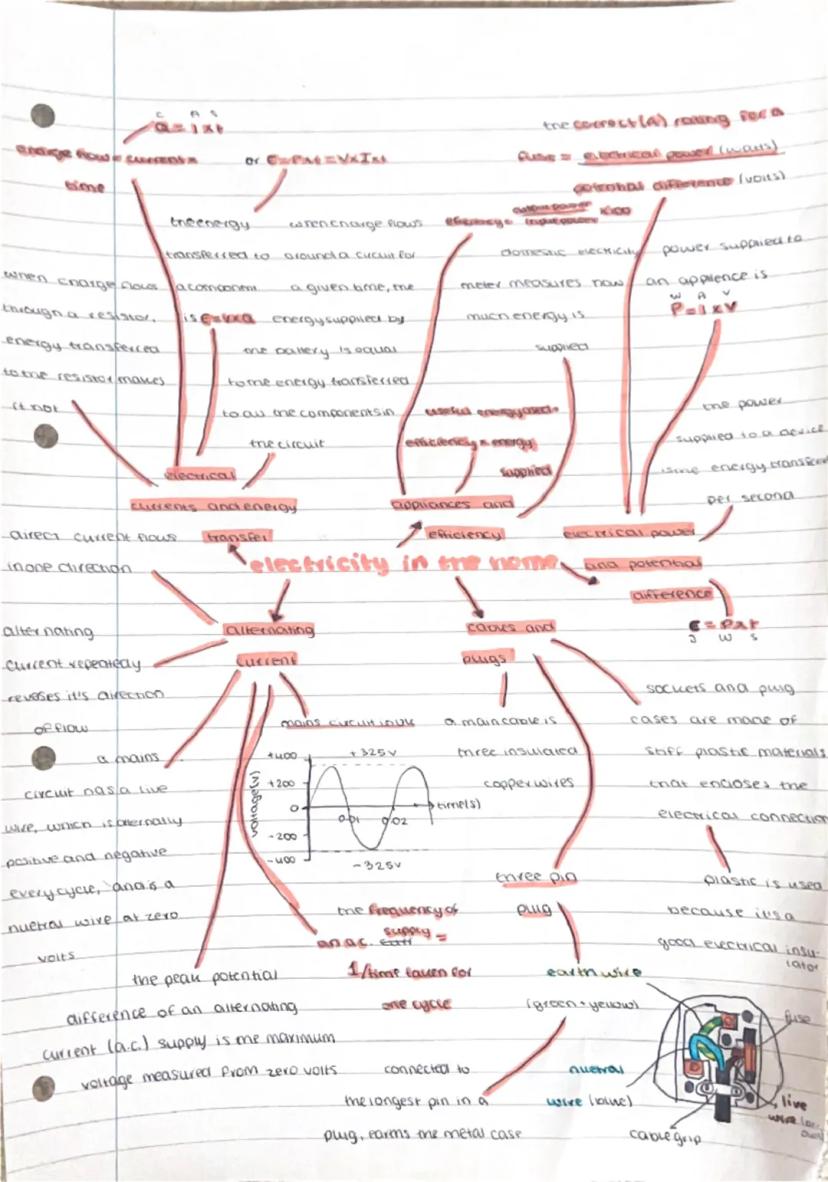 C A S
Q = I x t
charge flow = current x
time
or E=Pxt = VxIxt
the energy
transferred to
a component
is E=VxQ
when charge flows
around a circuit for
a given time, the
energy supplied by
the battery is equal
to the energy transferred
to all the components in
the circuit
when charge flows
through a resistor,
energy transferred
to the resistor makes
it hot
electrical
currents and energy
transfer
the correct (A) rating for a
fuse = electrical power (watts)
potential difference (volts)
efficiency = output power
input power x100
domestic electricity
meter measures how
much energy is
supplied
useful energy used
efficiency = energy
supplied
appliances and
efficiency
power supplied to
an applience is
W A V
P = I x V
the power
supplied to a device
is the energy transfered
per second
electrical power
and potential
difference
E = Pxt
J W S
electricity in the home
direct current flows
in one direction
alternating
current repeatedly
reverses it's direction
of flow
a mains
circuit has a live
wire, which is alternally
positive and negative
every cycle, and is a
nuetral wire at zero
volts
alternating
current
mains circuit in UK
voltage(v)
+400
+200
0
-200
-400
+325v
0.01
0.02
time(s)
-325v
the frequency of
an a.c. supply =
1/time taken for
one cycle
the peak potential
difference of an alternating
current (a.c.) supply is the maximum
voltage measured from zero volts
cables and
plugs
a main cable is
three insulated
copper wires
sockets and plug
cases are made of
stiff plastic materials
that encloses the
electrical connection
plastic is used
because it's a
good electrical insu-
lator
three pin
plug
earth wire
(green + yellow)
connected to
the longest pin in a
plug, earths the metal case
nuetral
wire (blue)
fuse
live
wire
cable grip